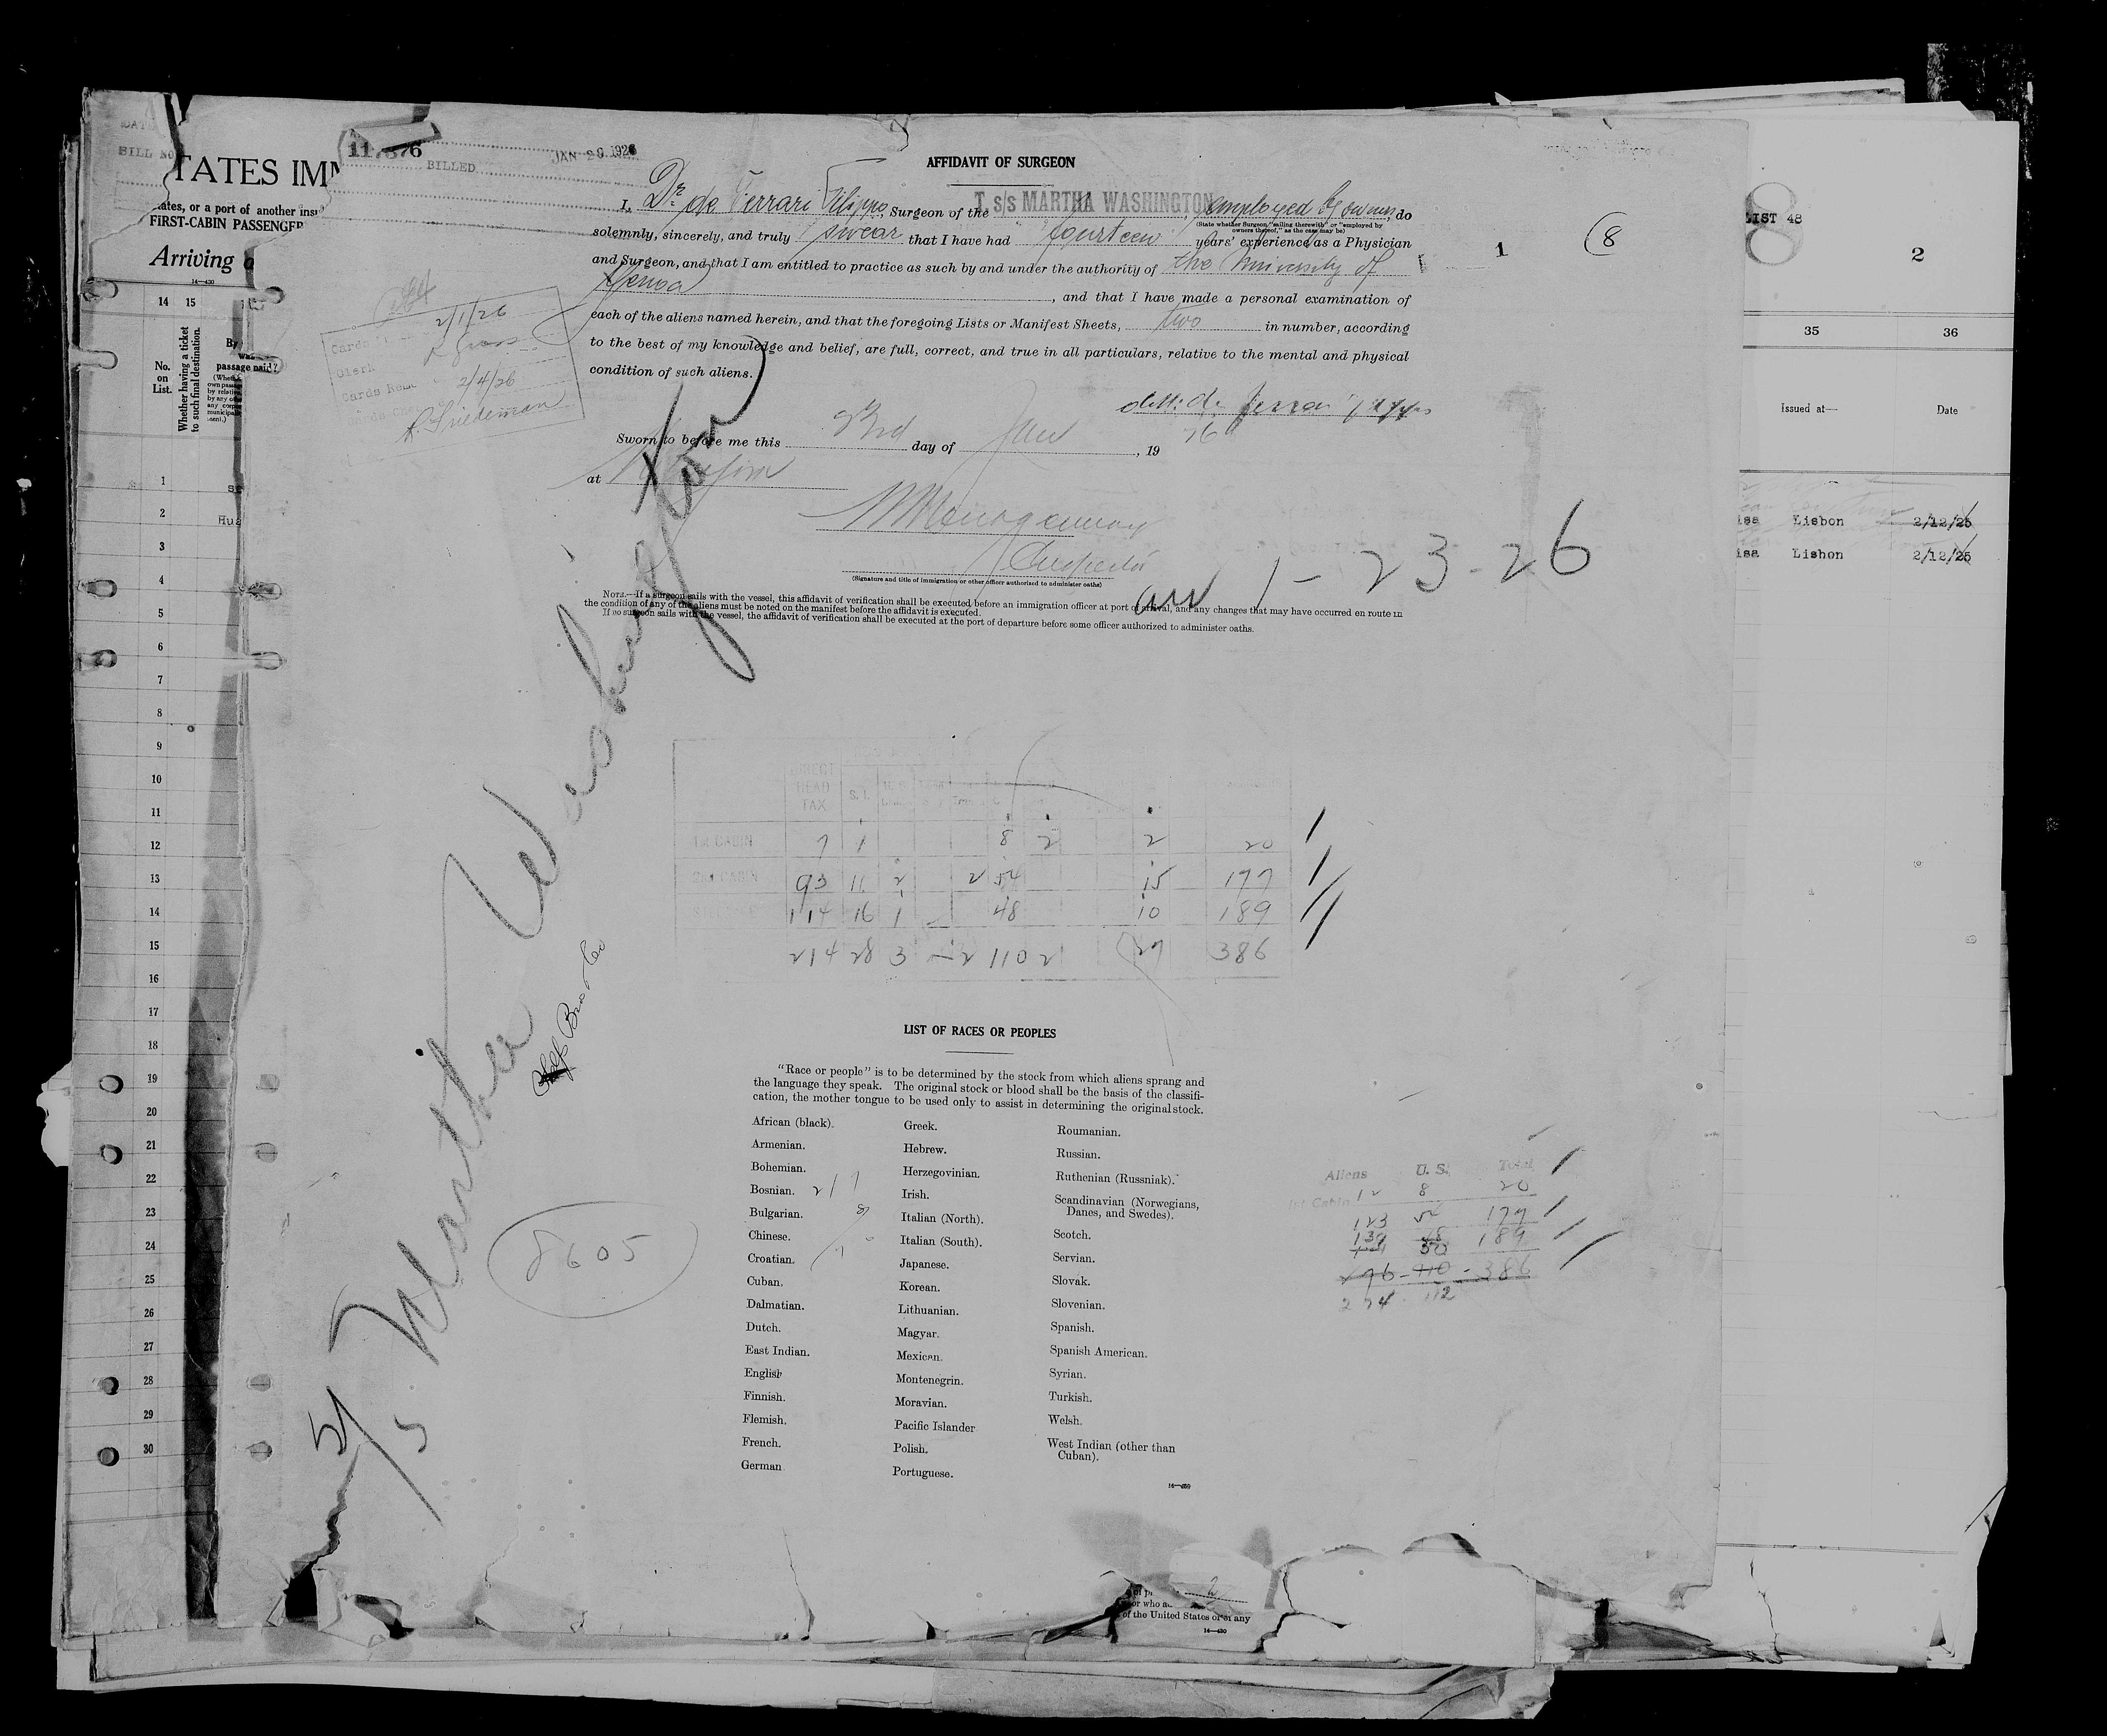 BILL NO
TATES IMM
ates, or a port of another insu
FIRST-CABIN PASSENGER
Arriving a
14—430
14 15
No. on List.
Whether having a ticket to such final destination.
By
passage paid?
1
2 Hua
3
4
5
6
7
8
9
10
11
12
13
14
15
16
17
18
19
20
21
22
23
24
25
26
27
28
29
30
BILLED
JAN 26 1926
2/1/26
2/4/26
R. Friedeman
AFFIDAVIT OF SURGEON
I, Dr de Ferrari Filippo, Surgeon of the T. s/s MARTHA WASHINGTON, employed by owners, do
(State whether Surgeon, "sailing therewith" or "employed by owners thereof," as the case may be)
solemnly, sincerely, and truly swear that I have had fourteen years' experience as a Physician
and Surgeon, and that I am entitled to practice as such by and under the authority of the University of
Genoa, and that I have made a personal examination of
each of the aliens named herein, and that the foregoing Lists or Manifest Sheets, two in number, according
to the best of my knowledge and belief, are full, correct, and true in all particulars, relative to the mental and physical
condition of such aliens.
Sworn to before me this 23rd day of Jan, 19 26
at
Inspector
(Signature and title of immigration or other officer authorized to administer oaths)
NOTE.—If a surgeon sails with the vessel, this affidavit of verification shall be executed before an immigration officer at port of arrival, and any changes that may have occurred en route in
the condition of any of the aliens must be noted on the manifest before the affidavit is executed.
If no surgeon sails with the vessel, the affidavit of verification shall be executed at the port of departure before some officer authorized to administer oaths.
1
(8
1-23-26
S/S Martha Washington
8605
DIRECT HEAD TAX S. I.
1st CABIN 7 1 8 2 2 20
2nd CABIN 93 11 2 2 54 15 177
114 16 1 48 10 189
214 28 3 2 110 2 27 386
LIST OF RACES OR PEOPLES
"Race or people" is to be determined by the stock from which aliens sprang and
the language they speak. The original stock or blood shall be the basis of the classifi-
cation, the mother tongue to be used only to assist in determining the original stock.
African (black).
Armenian.
Bohemian.
Bosnian.
Bulgarian.
Chinese.
Croatian.
Cuban.
Dalmatian.
Dutch.
East Indian.
English
Finnish.
Flemish.
French.
German
Greek.
Hebrew.
Herzegovinian.
Irish.
Italian (North).
Italian (South).
Japanese.
Korean.
Lithuanian.
Magyar.
Mexican.
Montenegrin.
Moravian.
Pacific Islander
Polish.
Portuguese.
Roumanian.
Russian.
Ruthenian (Russniak).
Scandinavian (Norwegians,
Danes, and Swedes).
Scotch.
Servian.
Slovak.
Slovenian.
Spanish.
Spanish American.
Syrian.
Turkish.
Welsh.
West Indian (other than
Cuban).
Aliens U. S. Total
1st Cabin 12 8 20
123 54 177
139 50 189
276 - 110 - 386
274 112
or who a
of the United States or of any
14—430
LIST 48
8
2
35 36
Issued at— Date
isa Lisbon 2/12/25
isa Lisbon 2/12/25